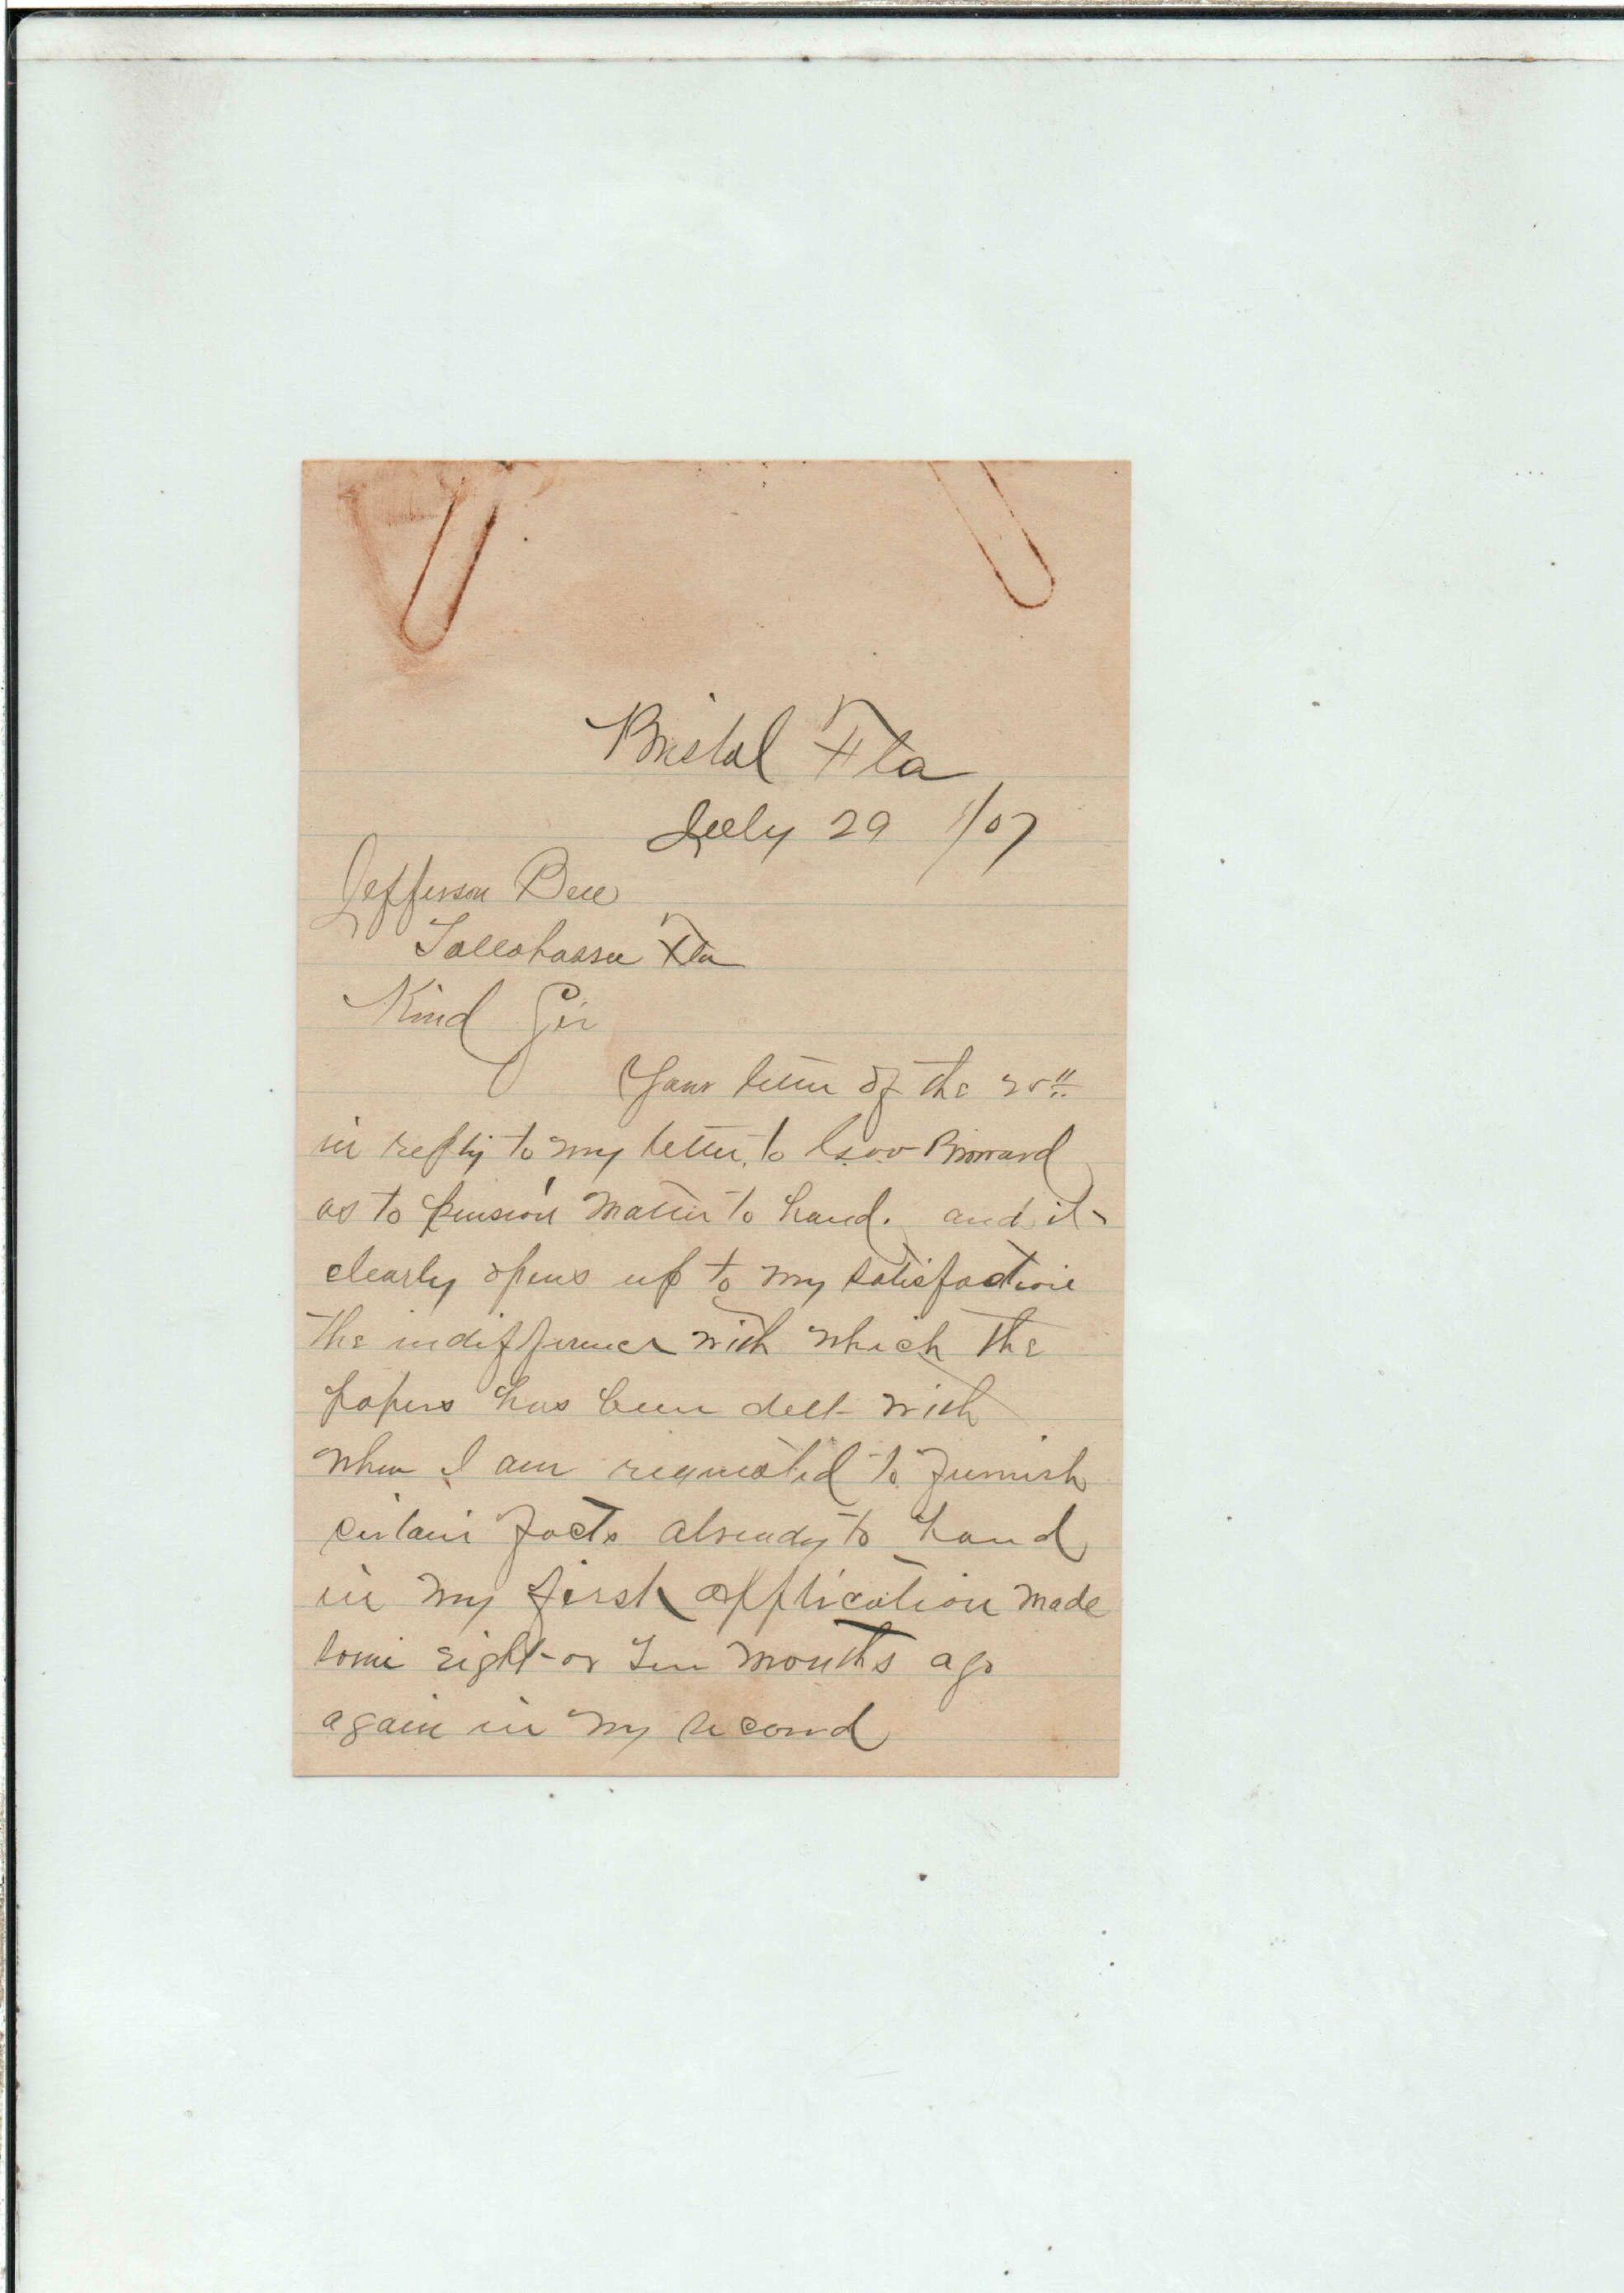 Bristol Fla
July 29 1/07
Jefferson Bell
Tallahassee Fla
Kind Sir
Your letter of the 25th
in reply to my letter to Gov Broward
as to pension matter to hand. and it
clearly opens up to my satisfaction
the indifference with which the
papers has been delt with
when I am requested to furnish
certain facts already to hand
in my first application made
some eight or ten months ago
again in my second